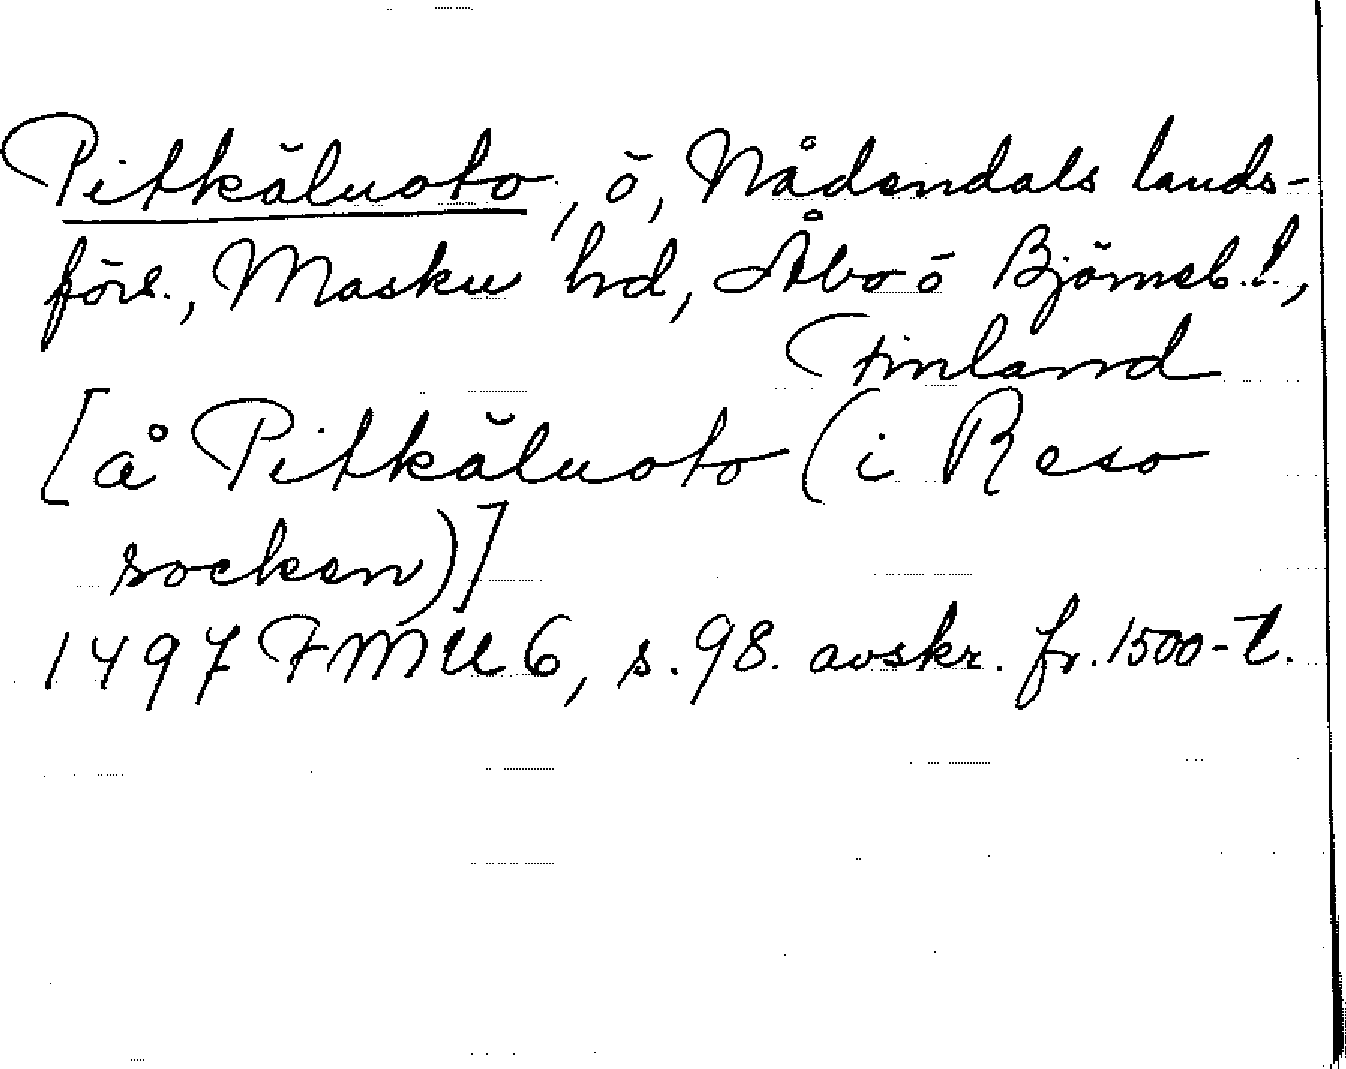 Pitkäluoto, ö, Nådendals lands-
förs., Masku hd, Åbo o Björneb. l.,
Finland
[å Pitkäluoto (i Reso
socken)]
1497 FMU 6, s. 98. avskr. fr. 1500-t.